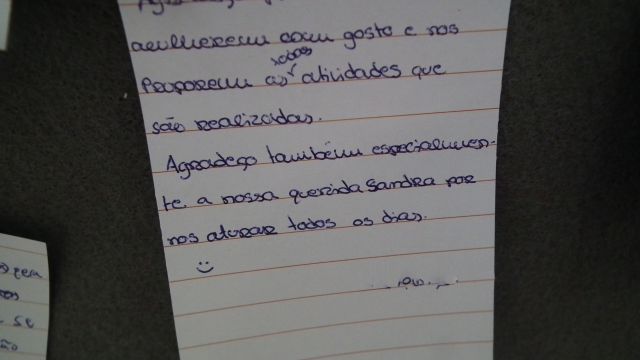 acolherem com gosto e nos
proporem as todas atividades que
são realizadas.
Agradeço também especialmen-
te a nossa querida Sandra por
nos aturar todos os dias.
:)
se